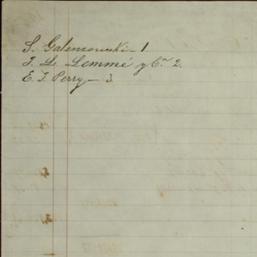 S. Galencowski — 1.
J. Le Lemmé y Ca. 2.
E. J. Perry — 3.